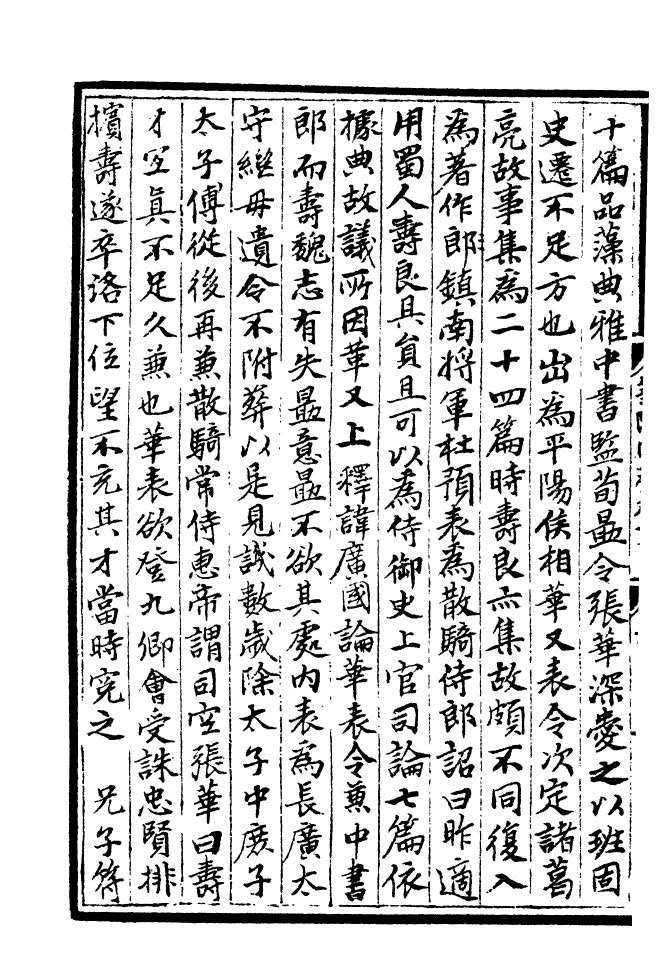 十篇品藻典雅中書監荀勗令張華深愛之以班固
史遷不足方也出為平陽侯相華又表令次定諸葛
亮故事集為二十四篇時壽良亦集故頗不同復入
為著作郎鎮南將軍杜預表為散騎侍郎詔曰昨適
用蜀人壽良具員且可以為侍御史上官司論七篇依
據典故議所因革又上釋諱廣國論華表令兼中書
郎而壽魏志有失勗意勗不欲其處內表為長廣太
守繼母遺令不附葬以是見譏數歲除太子中庶子
太子傅從後再兼散騎常侍惠帝謂司空張華曰壽
才宜真不足久兼也華表欲登九卿會受誅忠賢排
擯壽遂卒洛下位望不充其才當時冤之　兄子符